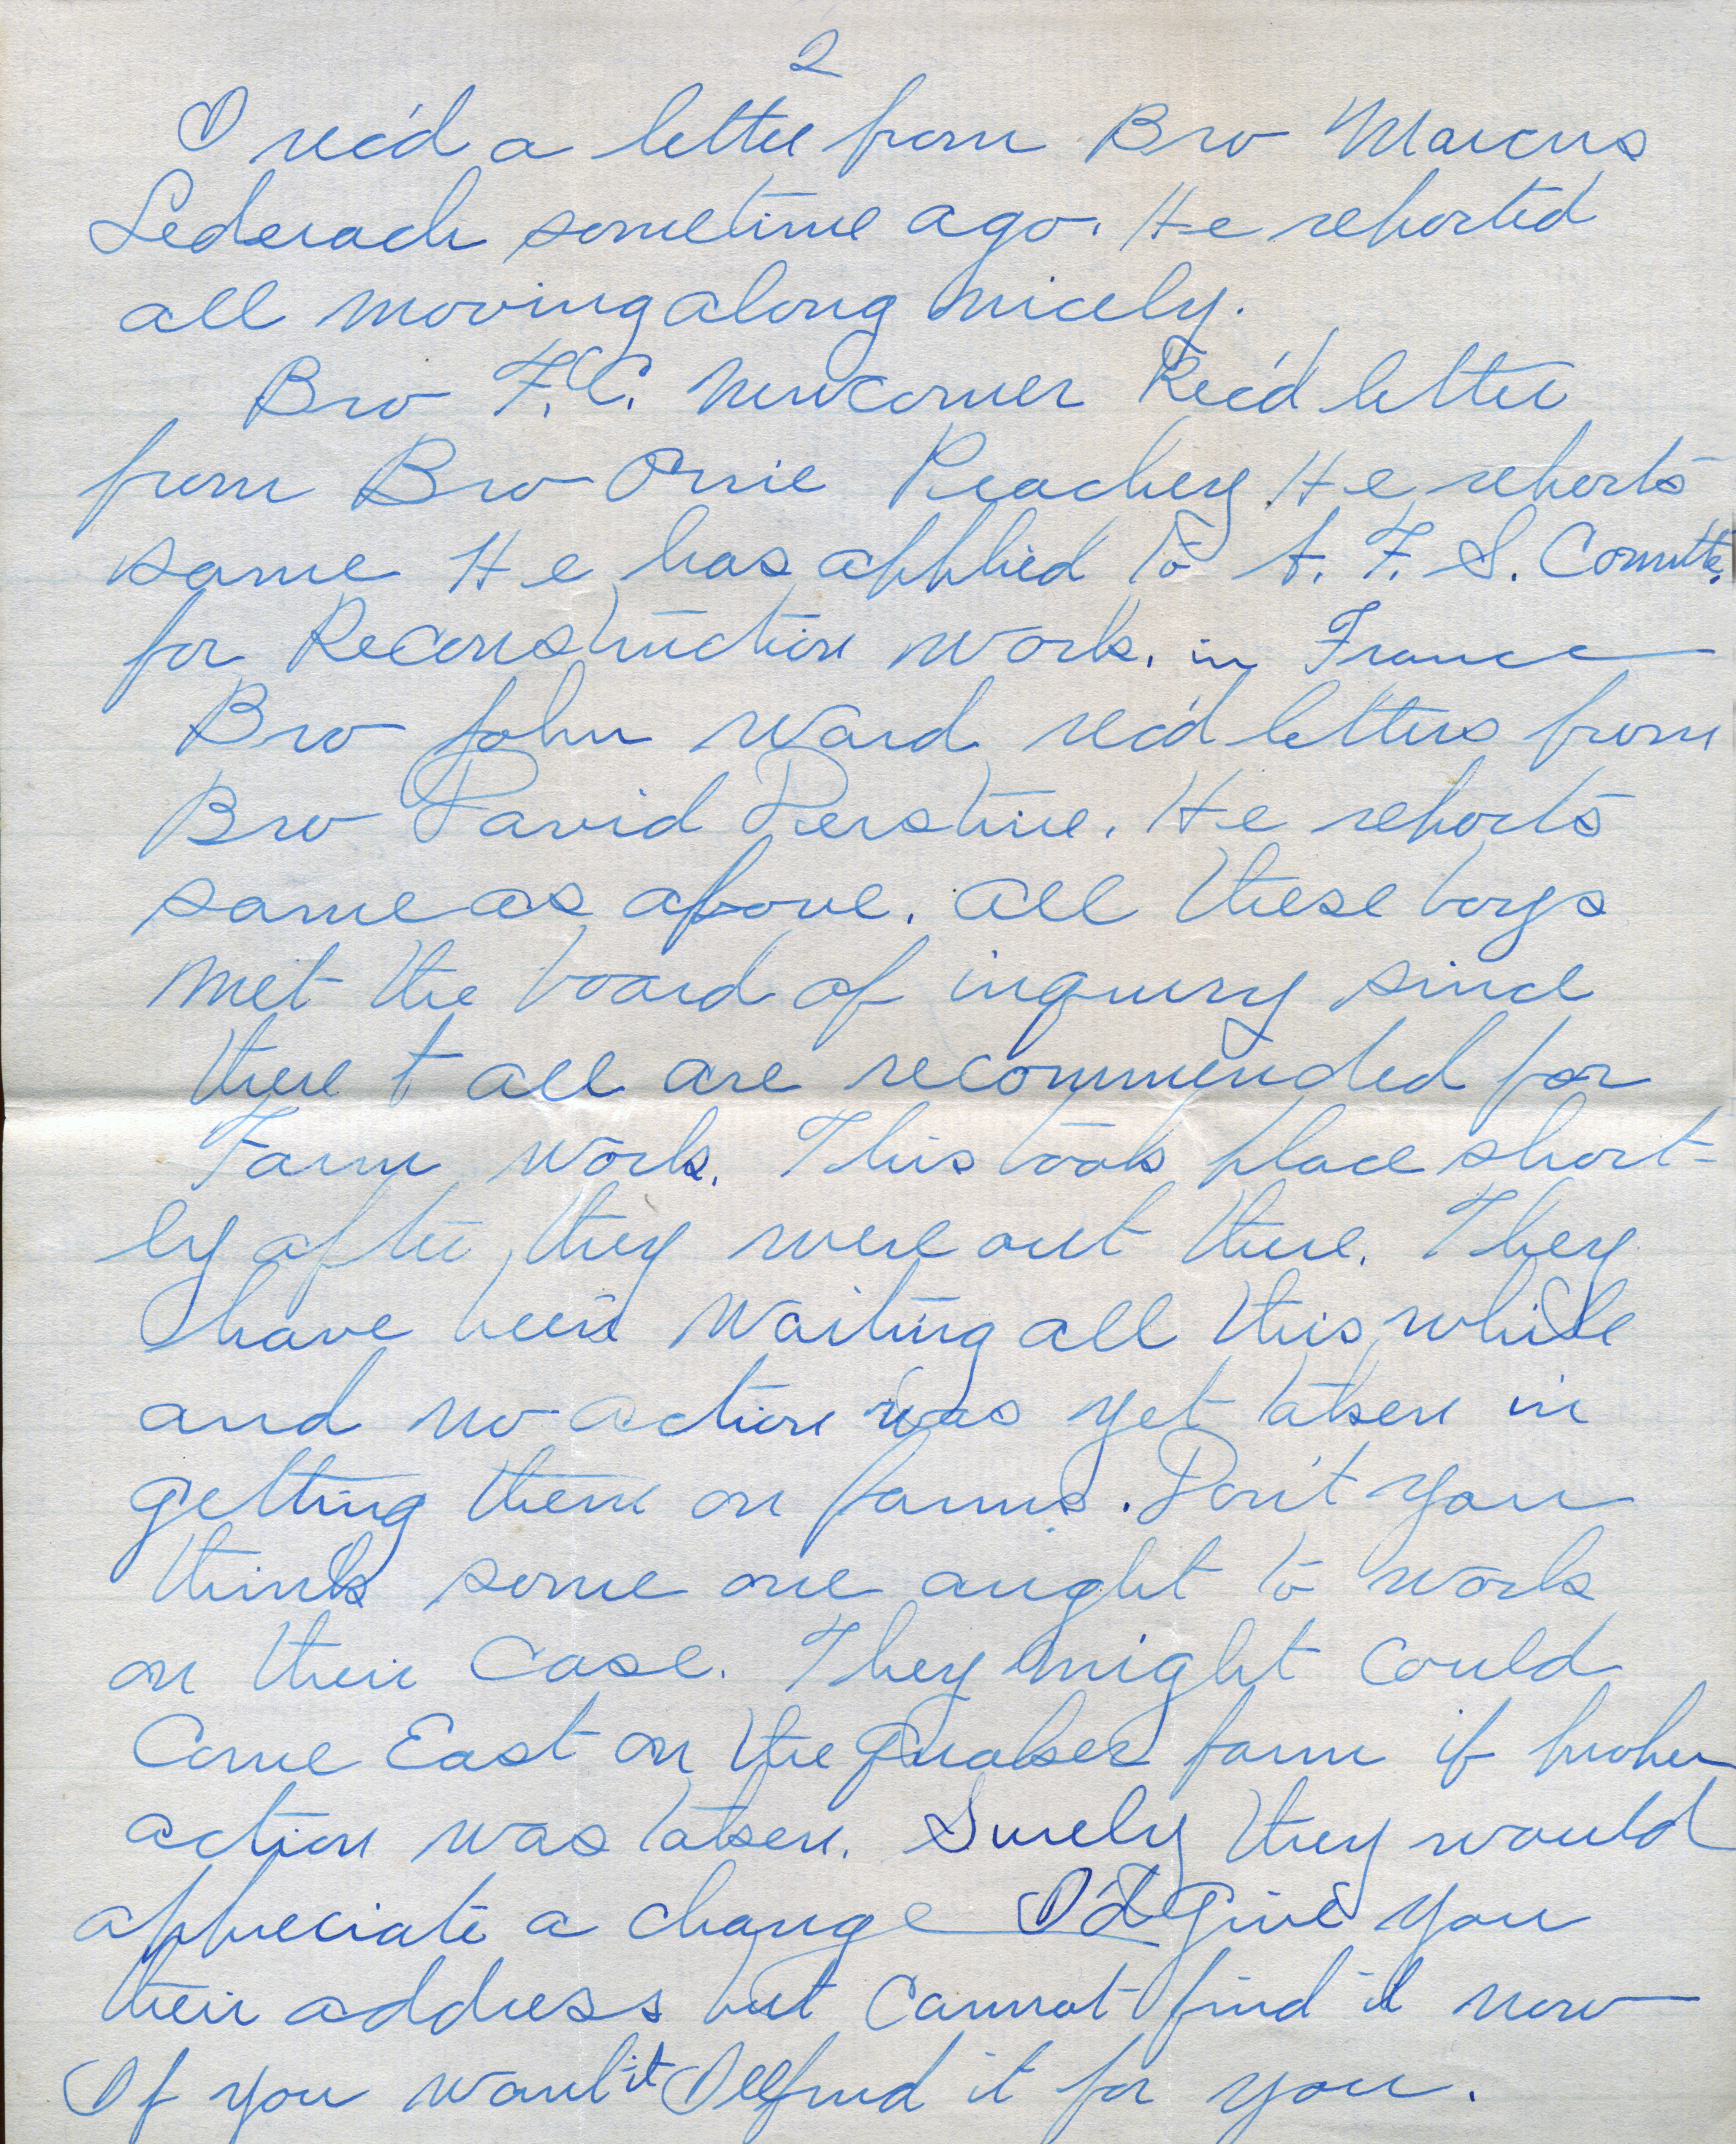 2
I rec'd a letter from Bro Marcus
Lederach sometime ago. He reported
all moving along nicely.
Bro F.C. Newcomer Rec'd letter
from Bro Orrie Peachey. He reports
same He has applied to A. F. S. Committe.
for Reconstruction work. in France
Bro John Ward rec'd letters from
Bro David Derstine. He reports
same as above. all these boys
met the board of inquiry since
there & all are recommended for
Farm work. This took place short-
ly after they were out there. They
have been waiting all this while
and no action was yet taken in
getting them on farms. Don't you
think some one aught to work
on their case. They might could
Come East on the Quaker farm if proper
action was taken. Surely they would
appreciate a change I'd give you
their address but cannot find it now
If you want it I'll find it for you.